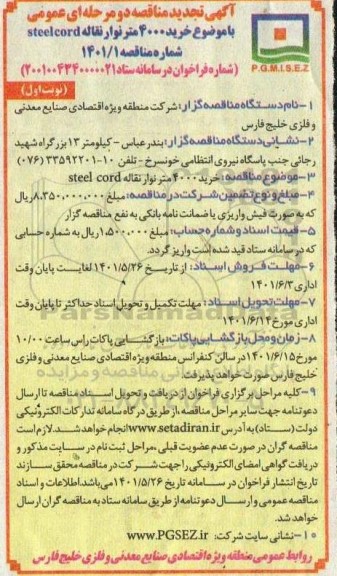 آگهی تجدید مناقصه دو مرحله ای عمومی
با موضوع خرید ۴۰۰۰ متر نوار نقاله steelcord
شماره مناقصه ۱۴۰۱/۱
(شماره فراخوان در سامانه ستاد ۲۰۰۱۰۰۴۳۴۰۰۰۰۰۲۱)
P.G.M.I.S.E.Z
(نوبت اول)
۱-نام دستگاه مناقصه گزار: شرکت منطقه ویژه اقتصادی صنایع معدنی
و فلزی خلیج فارس
۲-نشانی دستگاه مناقصه گزار: بندرعباس - کیلومتر ۱۳ بزرگراه شهید
رجائی جنب پاسگاه نیروی انتظامی خونسرخ - تلفن ۱۰-۳۳۵۹۲۲۰۱ (۰۷۶)
۳-موضوع مناقصه: خرید ۴۰۰۰ متر نوار نقاله steel cord
۴-مبلغ و نوع تضمین شرکت در مناقصه: مبلغ ۸،۳۵۰،۰۰۰،۰۰۰ ریال
که به صورت فیش واریزی یا ضمانت نامه بانکی به نفع مناقصه گزار
۵-قیمت اسناد و شماره حساب: مبلغ ۱،۵۰۰،۰۰۰ ریال به شماره حسابی
که در سامانه ستاد قید شده است واریز گردد.
۶-مهلت فروش اسناد: از تاریخ ۱۴۰۱/۵/۲۶ لغایت پایان وقت
اداری ۱۴۰۱/۶/۳
۷-مهلت تحویل اسناد: مهلت تکمیل و تحویل اسناد حداکثر تا پایان وقت
اداری مورخ ۱۴۰۱/۶/۱۴
۸-زمان و محل بازگشایی پاکات: بازگشایی پاکات راس ساعت ۱۰/۰۰
مورخ ۱۴۰۱/۶/۱۵ در سالن کنفرانس منطقه ویژه اقتصادی صنایع معدنی و فلزی
خلیج فارس صورت خواهد پذیرفت.
۹-کلیه مراحل برگزاری فراخوان از دریافت و تحویل اسناد مناقصه تا ارسال
دعوتنامه جهت سایر مراحل مناقصه، از طریق درگاه سامانه تدارکات الکترونیکی
دولت (ستاد) به آدرس www.setadiran.ir انجام خواهد شد. لازم است
مناقصه گران در صورت عدم عضویت قبلی، مراحل ثبت نام در سایت مذکور و
دریافت گواهی امضای الکترونیکی را جهت شرکت در مناقصه محقق سازند
تاریخ انتشار فراخوان در سامانه تاریخ ۱۴۰۱/۵/۲۶ می باشد. اطلاعات و اسناد
مناقصه عمومی و ارسال دعوتنامه از طریق سامانه ستاد به مناقصه گران ارسال
خواهد شد.
۱۰-نشانی سایت شرکت: www.PGSEZ.ir
روابط عمومی منطقه ویژه اقتصادی صنایع معدنی و فلزی خلیج فارس